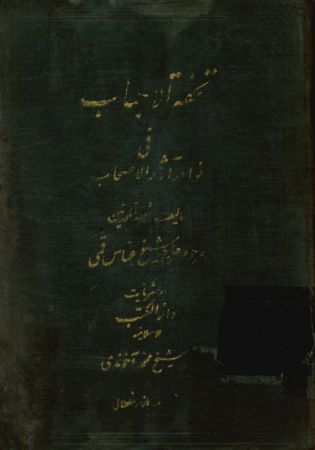 تحفة الاحباب
فی
نوادر آثار الاصحاب
تألیف ثقة المحدثین
مرحوم حاج شیخ عباس قمی
از نشریات
دار الکتب
الاسلامیه
شیخ محمد آخوندی
بازار سلطانی